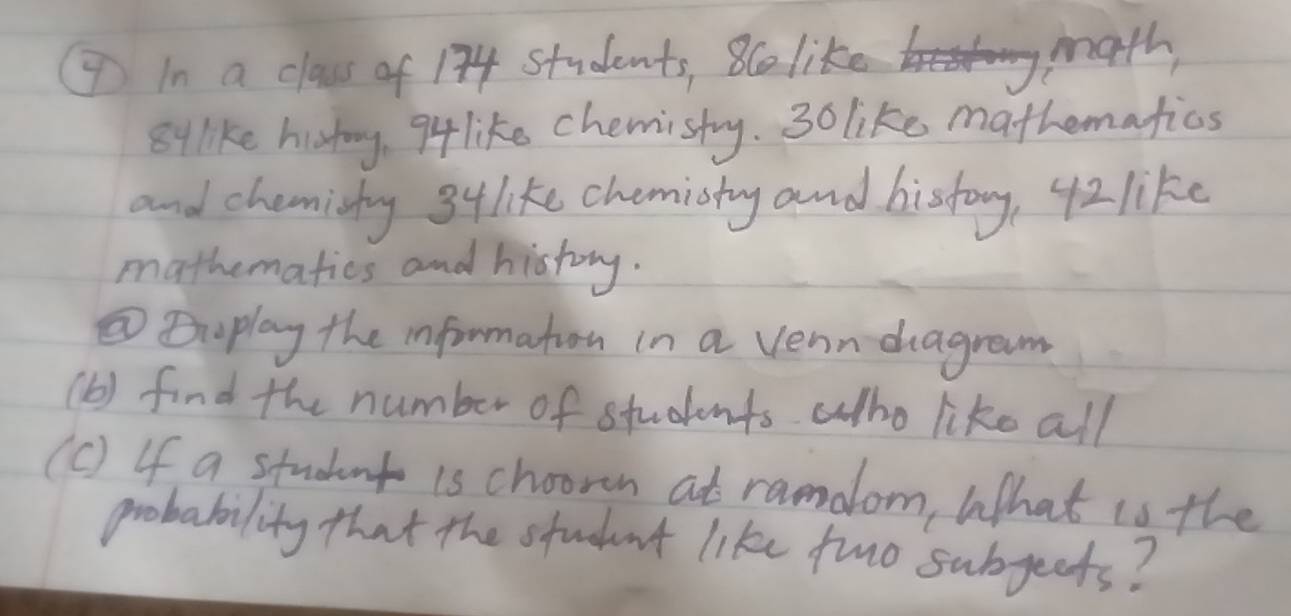 ④ In a class of 174 students, 86 like math,
84 like history, 94 like chemistry. 30 like mathematics
and chemistry 34 like chemistry and history, 42 like
mathematics and history.
ⓐ Display the information in a Venn diagram
(b) find the number of students who like all
(c) If a student is choosen at ramdom, What is the
probability that the student like two subjects?